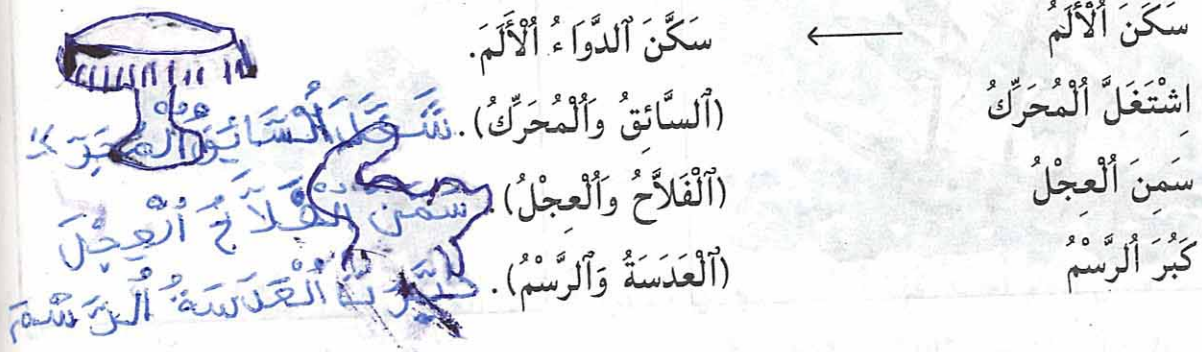 سَكَنَ ٱلْأَلَمُ ← سَكَّنَ ٱلدَّوَاءُ ٱلْأَلَمَ.
اِشْتَغَلَّ ٱلْمُحَرِّكُ (ٱلسَّائِقُ وَٱلْمُحَرِّكُ). شَغَّلَ ٱلسَّائِقُ ٱلْمُحَرِّكَ
سَمِنَ ٱلْعِجْلُ (ٱلْفَلاَّحُ وَٱلْعِجْلُ). سَمَّنَ ٱلْفَلاَّحُ ٱلْعِجْلَ
كَبُرَ ٱلرَّسْمُ (ٱلْعَدَسَةُ وَٱلرَّسْمُ). كَبَّرَتْ ٱلْعَدَسَةُ ٱلرَّسْمَ